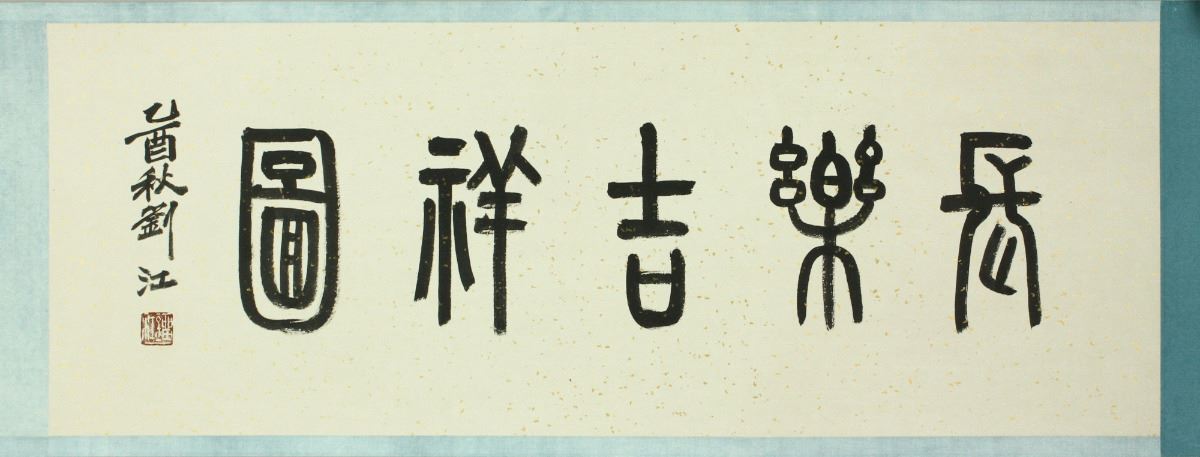 長樂吉祥圖
乙酉秋劉江